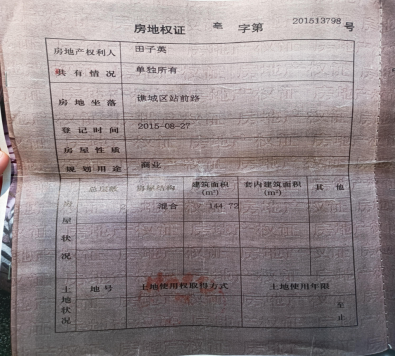 房地权证 亳 字第 201513798 号
房地产权利人 田子英
共有情况 单独所有
房地坐落 谯城区站前路
登记时间 2015-08-27
房屋性质
规划用途 商业
房屋状况 总层数 房屋结构 建筑面积(m²) 套内建筑面积(m²) 其他
混合 144.72
土地状况 地号 土地使用权取得方式 土地使用年限
至
止